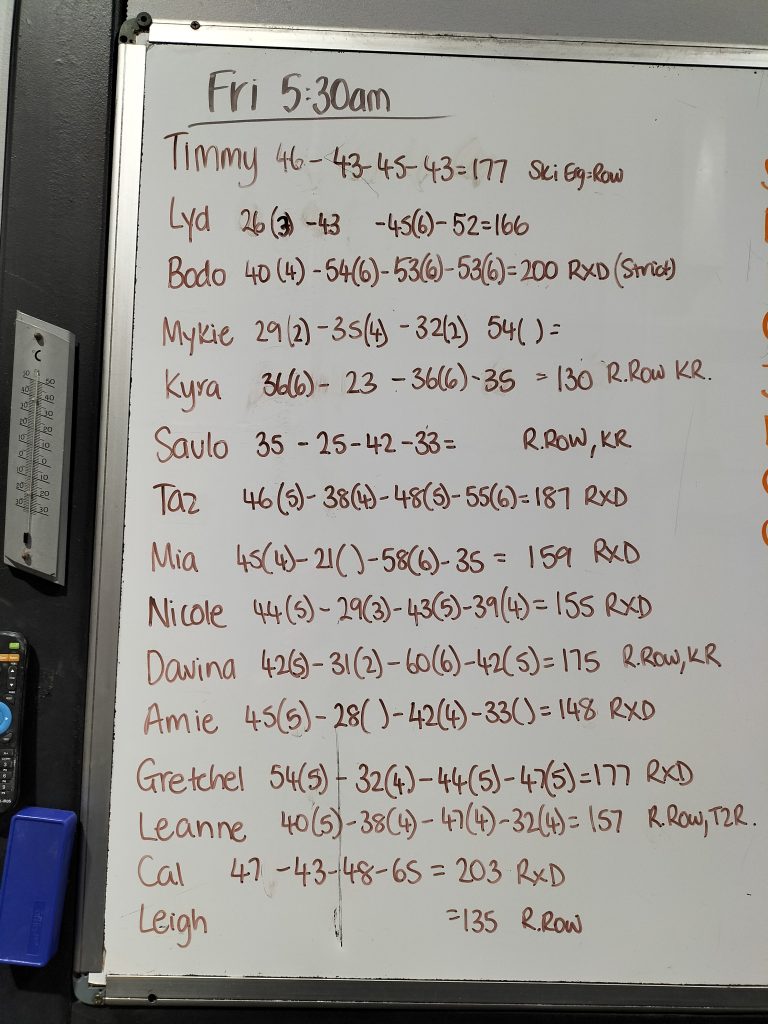 Fri 5:30am
Timmy 46 - 43-45-43=177 Ski Erg=Row
Lyd 26(3) -43 -45(6)- 52=166
Bodo 40(4) -54(6)-53(6)-53(6)=200 RXD (Strict)
Mykie 29(2) -35(4) -32(2) 54( ) =
Kyra 36(6)- 23 -36(6)-35 =130 R.Row KR.
Saulo 35 -25-42-33= R.ROW, KR
Taz 46(5)-38(4)-48(5)-55(6)=187 RXD
Mia 45(4)-21( )-58(6)-35 = 159 RXD
Nicole 44(5)-29(3)-43(5)-39(4)=155 RXD
Davina 42(5)-31(2)-60(6)-42(5)=175 R.Row, KR
Amie 45(5)-28( )-42(4)-33( )=148 RXD
Gretchel 54(5)-32(4)-44(5)-47(5)=177 RXD
Leanne 40(5)-38(4)-47(4)-32(4)=157 R.Row, T2R.
Cal 47 -43-48-65 = 203 RXD
Leigh =135 R.Row
°C